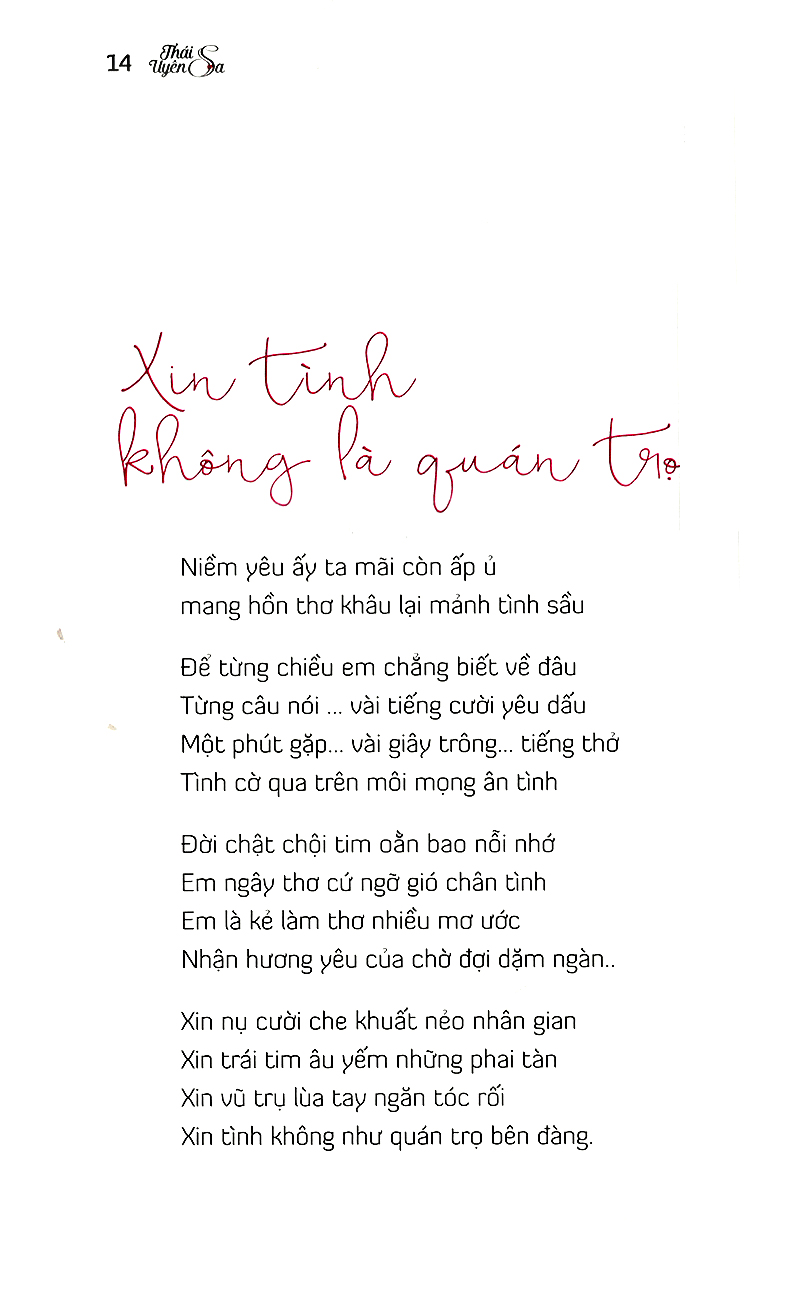 14 Thái
Uyên Sa
Xin tình
không là quán trọ
Niềm yêu ấy ta mãi còn ấp ủ
mang hồn thơ khâu lại mảnh tình sầu
Để từng chiều em chẳng biết về đâu
Từng câu nói ... vài tiếng cười yêu dấu
Một phút gặp... vài giây trông... tiếng thở
Tình cờ qua trên môi mọng ân tình
Đời chật chội tim oằn bao nỗi nhớ
Em ngây thơ cứ ngỡ gió chân tình
Em là kẻ làm thơ nhiều mơ ước
Nhận hương yêu của chờ đợi dặm ngàn..
Xin nụ cười che khuất nẻo nhân gian
Xin trái tim âu yếm những phai tàn
Xin vũ trụ lùa tay ngăn tóc rối
Xin tình không như quán trọ bên đàng.